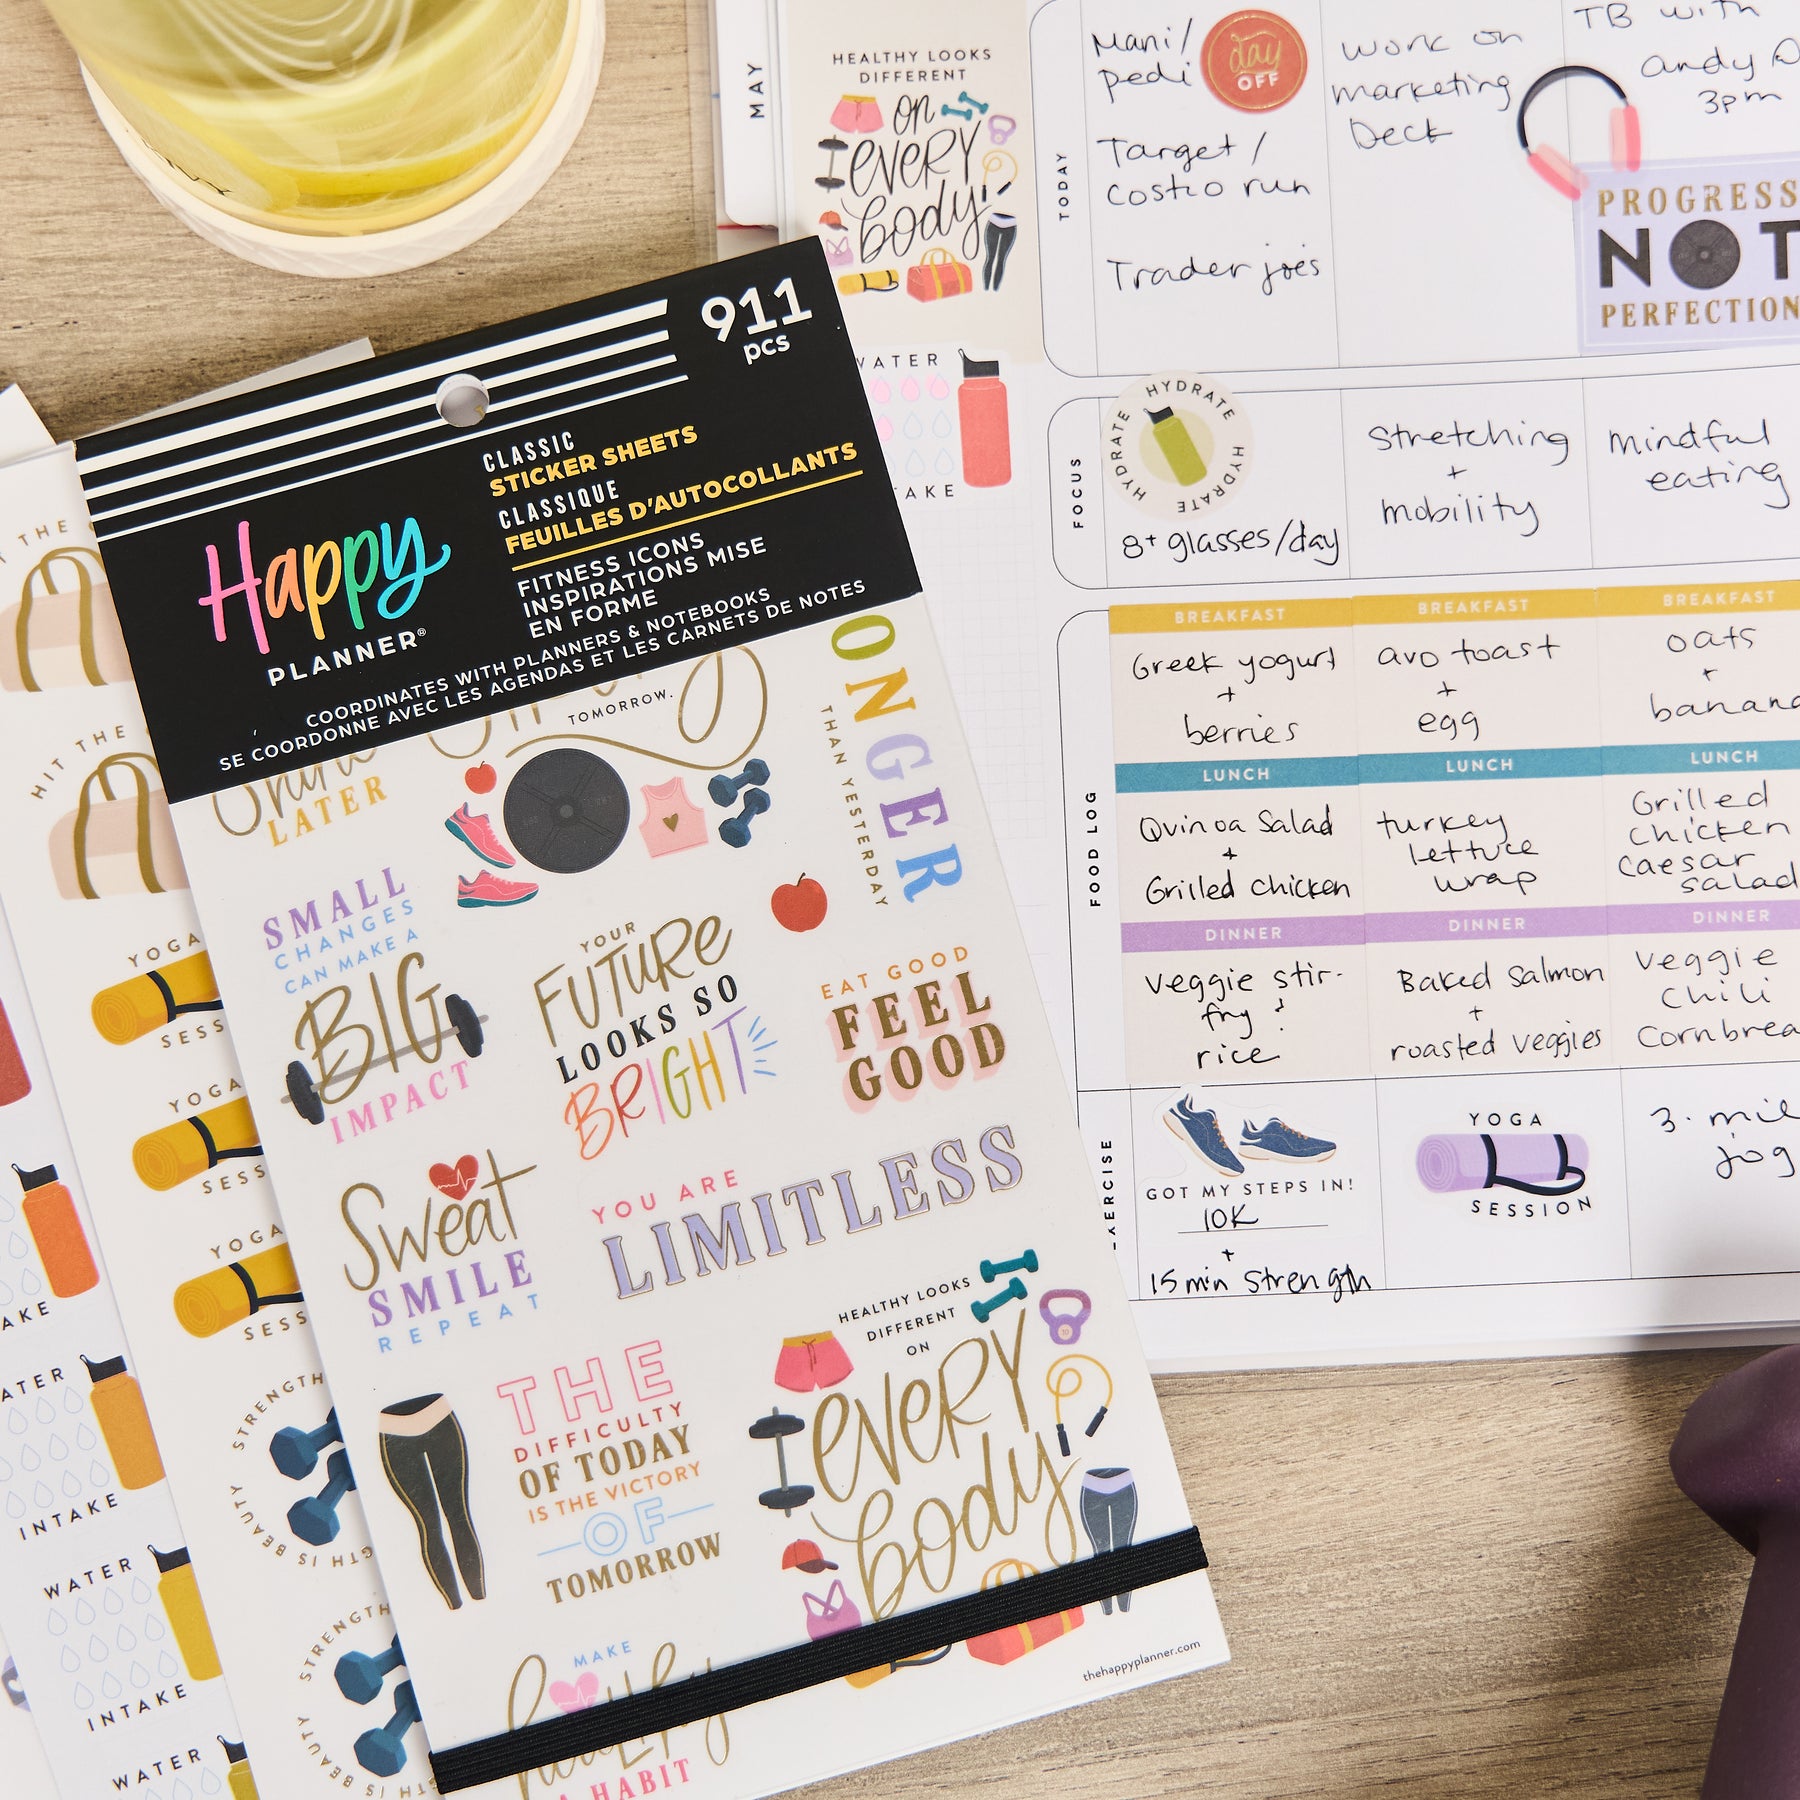 911
pcs
CLASSIC
STICKER SHEETS
CLASSIQUE
FEUILLES D'AUTOCOLLANTS
FITNESS ICONS
INSPIRATIONS MISE
EN FORME
COORDINATES WITH PLANNERS & NOTEBOOKS
SE COORDONNE AVEC LES AGENDAS ET LES CARNETS DE NOTES
Happy
PLANNER®
TOMORROW.
LATER
ONGER
THAN YESTERDAY
SMALL
CHANGES
CAN MAKE A
BIG
IMPACT
YOUR
FUTURE
LOOKS SO
BRIGHT
EAT GOOD
FEEL
GOOD
Sweat
SMILE
REPEAT
YOU ARE
LIMITLESS
THE
DIFFICULTY
OF TODAY
IS THE VICTORY
OF
TOMORROW
HEALTHY LOOKS
DIFFERENT
ON
EVERY
body
MAKE
A HABIT
thehappyplanner.com
HIT THE
YOGA
YOGA
YOGA
STRENGTH
IS BEAUTY
STRENGTH
IS BEAUTY
INTAKE
WATER
INTAKE
WATER
MAY
HEALTHY LOOKS
DIFFERENT
on
EVERY
body
WATER
TODAY
Mani/
pedi
day
OFF
Target /
Costco run
Trader joes
Work on
marketing
Deck
TB with
Andy
3pm
PROGRESS
NOT
PERFECTION
FOCUS
HYDRATE HYDRATE HYDRATE HYDRATE
8+ glasses/day
Stretching
+
mobility
mindful
eating
FOOD LOG
BREAKFAST
Greek yogurt
+
berries
LUNCH
Quinoa Salad
+
Grilled chicken
DINNER
Veggie stir-
fry &
rice
BREAKFAST
avo toast
+
egg
LUNCH
turkey
lettuce
wrap
DINNER
Baked Salmon
+
roasted veggies
BREAKFAST
oats
+
banana
LUNCH
Grilled
chicken
caesar
salad
DINNER
veggie
chili
EXERCISE
GOT MY STEPS IN!
10K
+
15 min Strength
YOGA
SESSION
jog